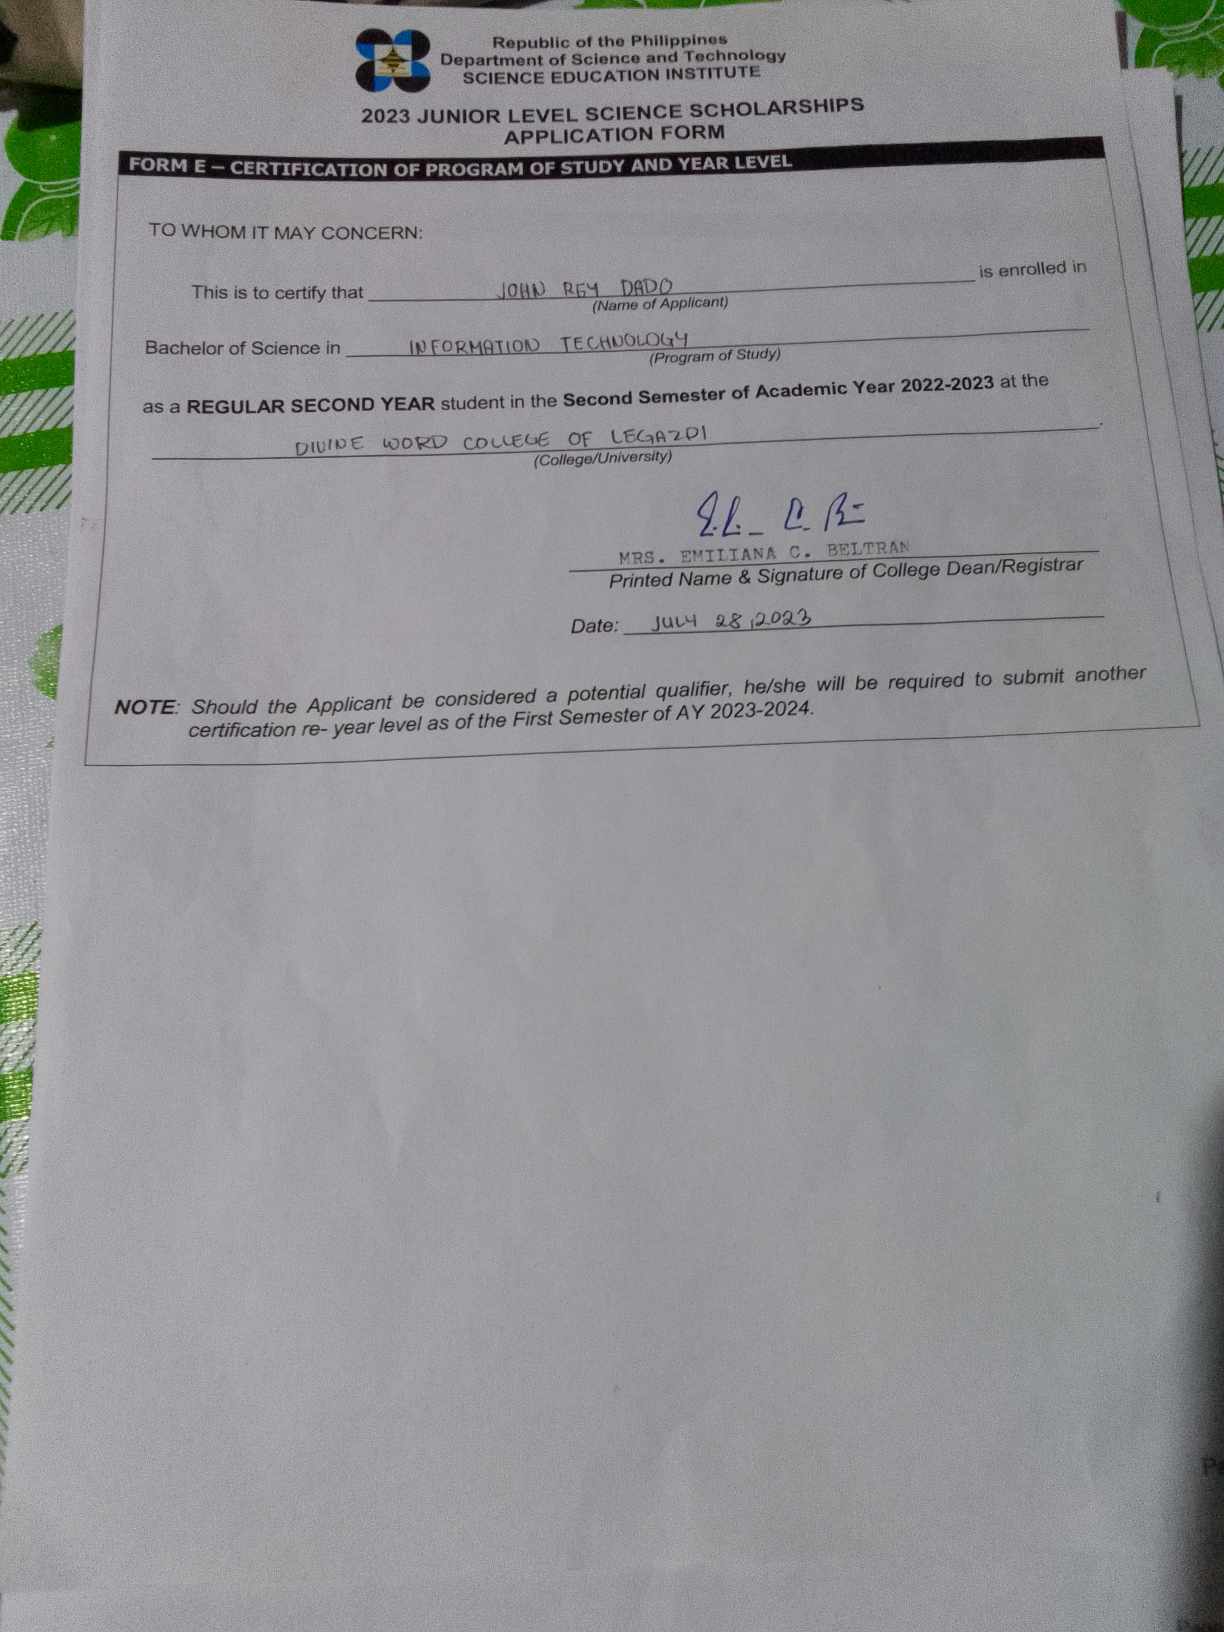 Republic of the Philippines
Department of Science and Technology
SCIENCE EDUCATION INSTITUTE
2023 JUNIOR LEVEL SCIENCE SCHOLARSHIPS
APPLICATION FORM
FORM E – CERTIFICATION OF PROGRAM OF STUDY AND YEAR LEVEL
TO WHOM IT MAY CONCERN:
This is to certify that JOHN REY DADO is enrolled in
(Name of Applicant)
Bachelor of Science in INFORMATION TECHNOLOGY
(Program of Study)
as a REGULAR SECOND YEAR student in the Second Semester of Academic Year 2022-2023 at the
DIVINE WORD COLLEGE OF LEGAZPI.
(College/University)
MRS. EMILIANA C. BELTRAN
Printed Name & Signature of College Dean/Registrar
Date: JULY 28, 2023
NOTE: Should the Applicant be considered a potential qualifier, he/she will be required to submit another
certification re- year level as of the First Semester of AY 2023-2024.